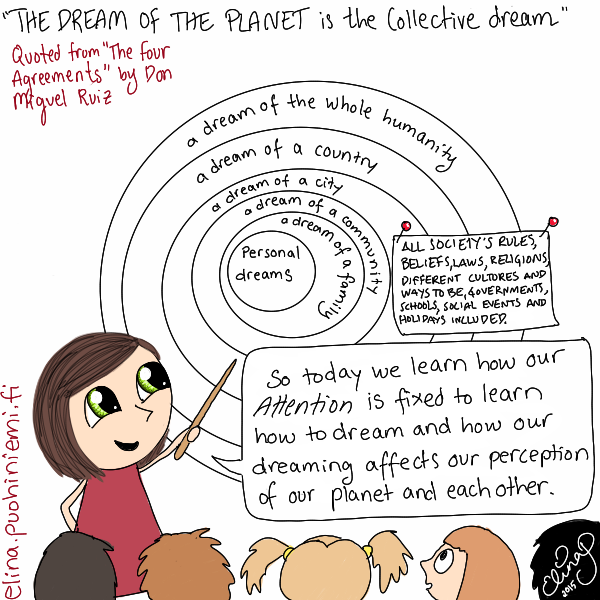 "THE DREAM OF THE PLANET is the Collective dream"
Quoted from "The Four
Agreements" by Don
Miguel Ruiz
a dream of the whole humanity
a dream of a country
a dream of a city
a dream of a community
a dream of a family
Personal
dreams
ALL SOCIETY'S RULES,
BELIEFS, LAWS, RELIGIONS,
DIFFERENT CULTURES AND
WAYS TO BE, GOVERNMENTS,
SCHOOLS, SOCIAL EVENTS AND
HOLIDAYS INCLUDED.
So today we learn how our
Attention is fixed to learn
how to dream and how our
dreaming affects our perception
of our planet and each other.
elina.puohiniemi.fi
ElinaP
2015